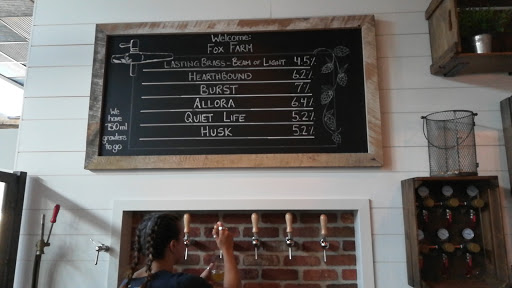 Welcome:
FOX FARM
LASTING BRASS - BEAM OF LIGHT 4.5%
HEARTHBOUND 6.2%
BURST 7%
ALLORA 6.4%
QUIET LIFE 5.2%
HUSK 5.2%
We
have
750 ml
growlers
to go